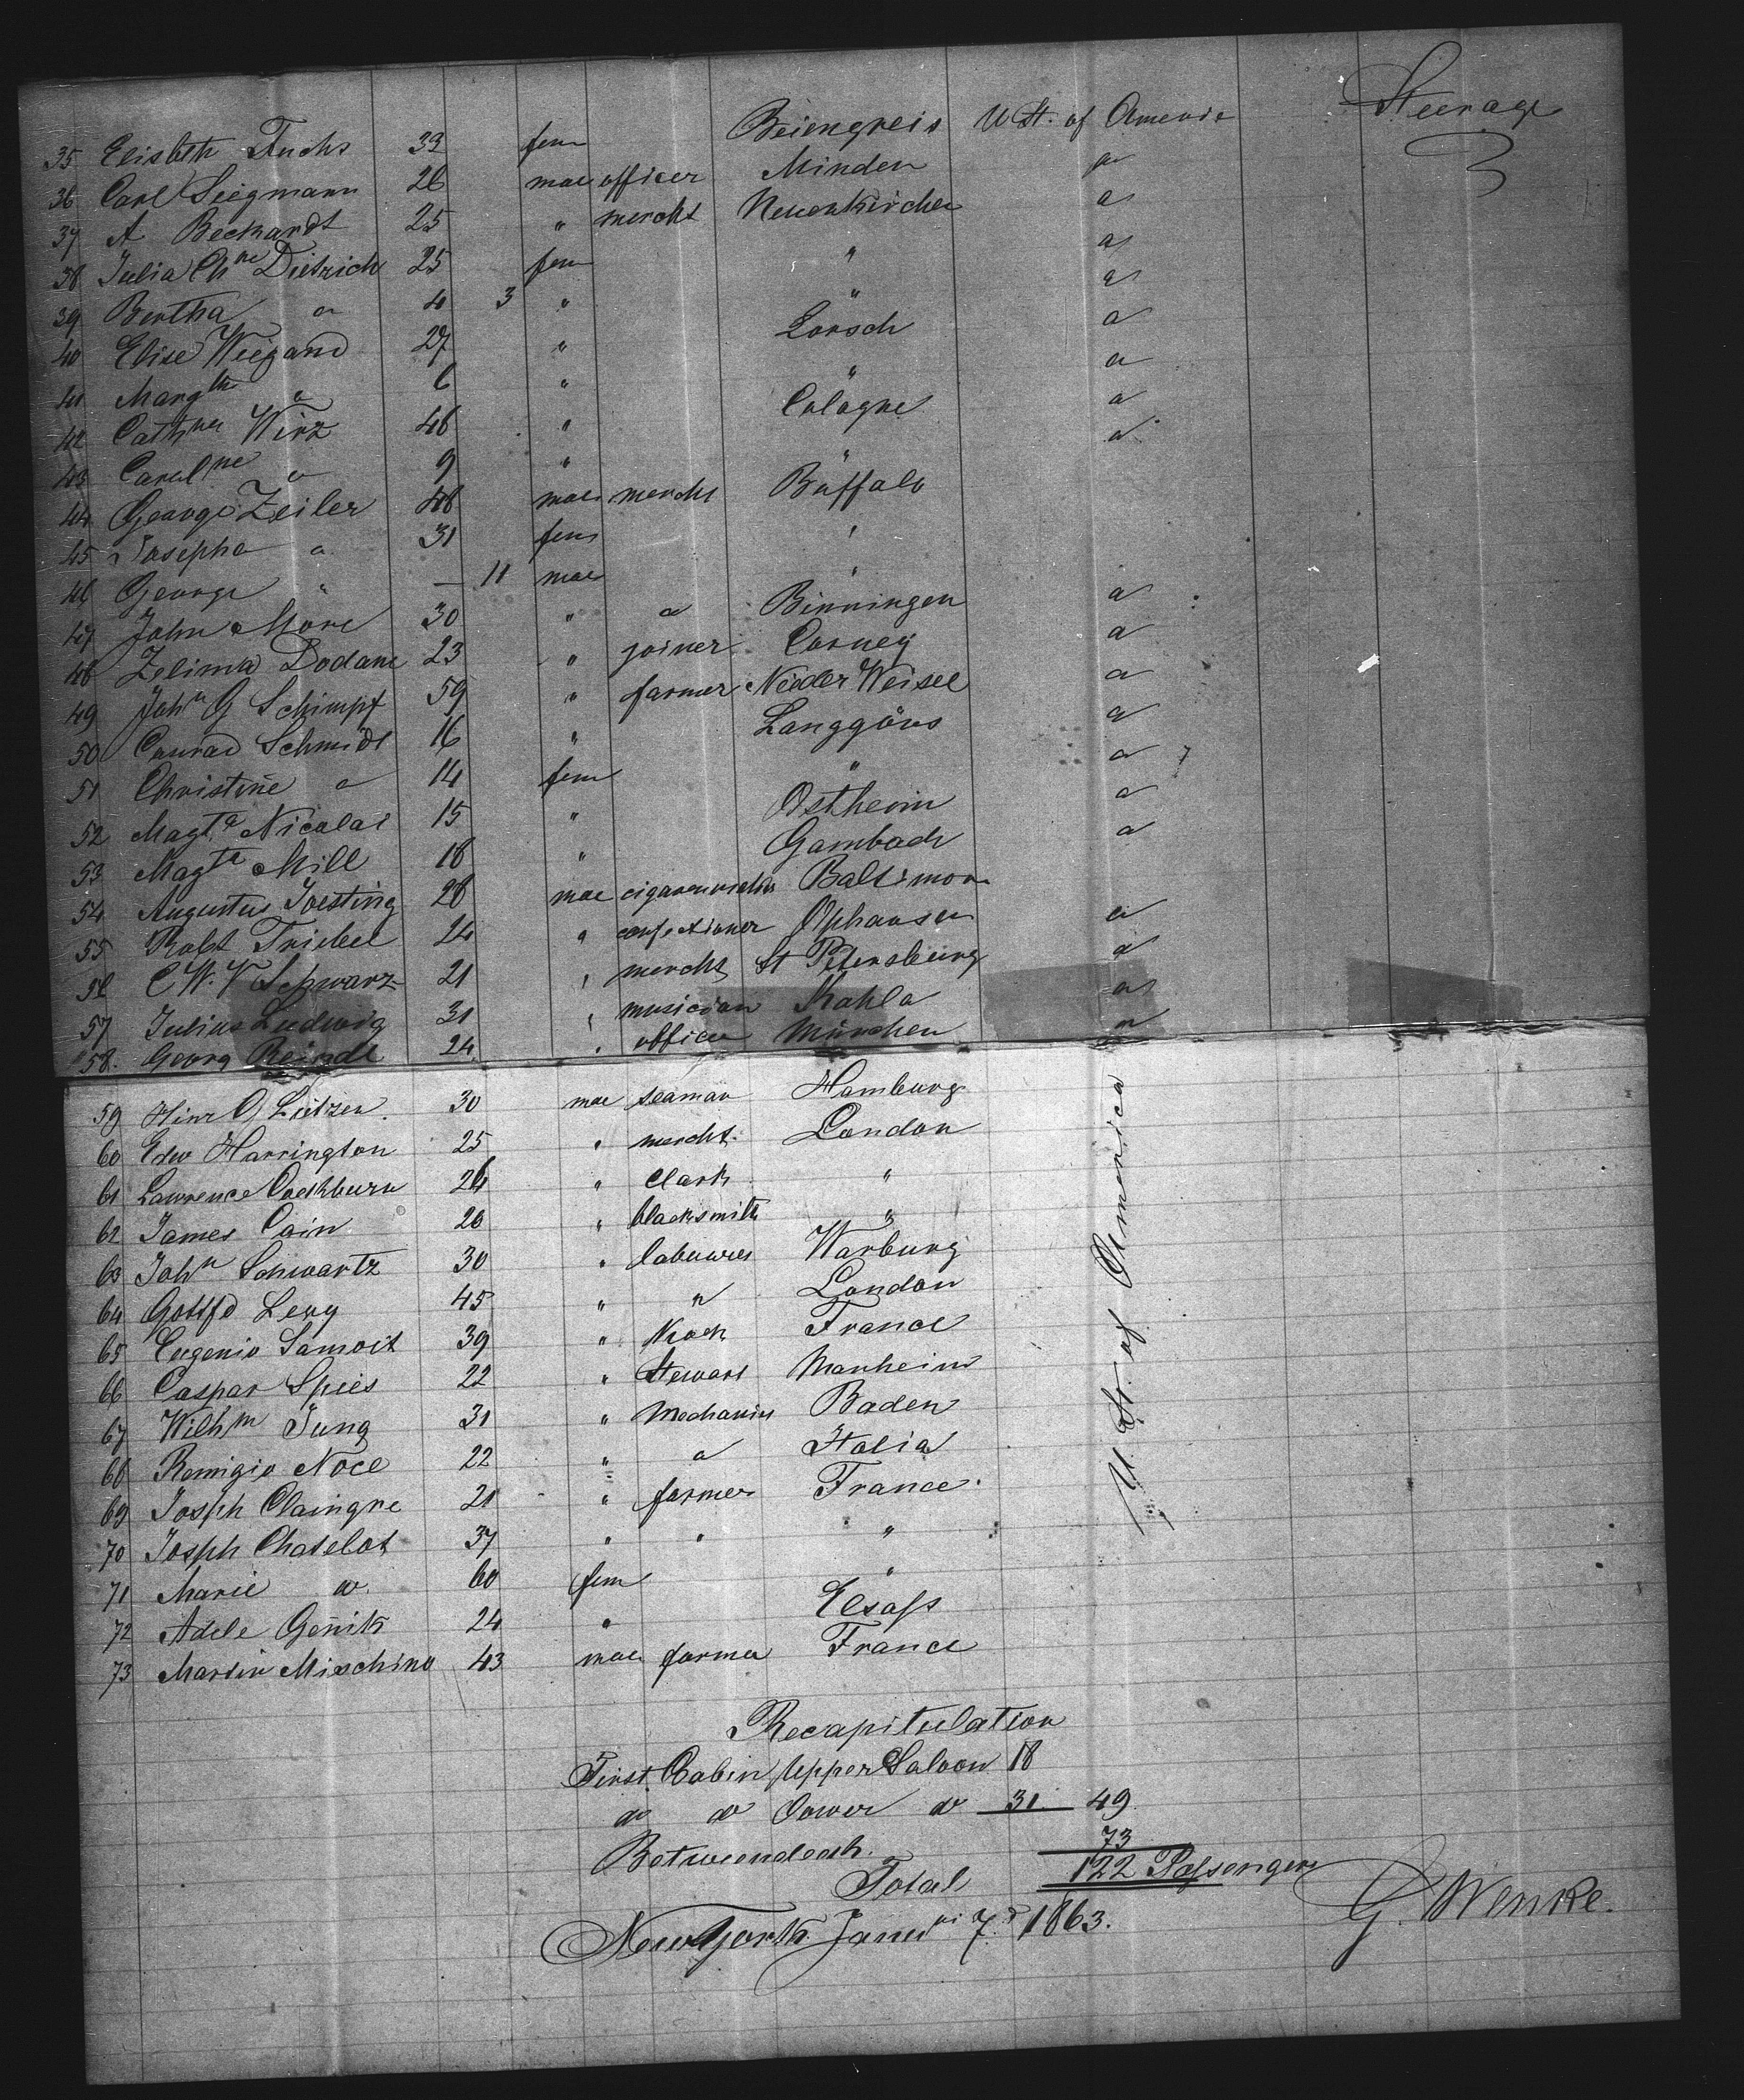 Steerage
35 Elisbth Fuchs 33 fem Beiengreis U St. of America
36 Carl Siegmann 26 mae officer Minden "
37 A Beckhardt 25 " mercht Neuenkirchen "
38 Julia Chne Dietrich 25 fem " "
39 Bertha " 4 3 " " "
40 Elise Wiegand 27 " Lorsch "
41 Margth " 6 " " "
42 Cathna Wirz 46 " Cologne "
43 Carolne " 9 " " "
44 George Zeiler 48 mae mercht Buffalo
45 Josepha " 31 fem "
46 George " — 11 mae "
47 John Möre 30 " " Binningen "
48 Zelima Dodane 23 " joiner Corney "
49 John G Schimpf 59 " farmer Nieder Weisel "
50 Conrad Schmidt 16 " Langgöns "
51 Christine " 14 fem " "
52 Magta Nicolai 15 " Ostheim "
53 Magta Mill 18 " Gambach "
54 Augustus Joesting 28 mae Baltimore
55 Robt Triebel 24 " confectioner Olphausen "
56 C W. V Schwarz 21 " mercht St Petersburg "
57 Julius Ludwig 31 " musician Kahla "
58. Georg Reindl 24 " officer München "
59 Hinr O Lützen. 30 mae seaman Hamburg
60 Edw Harrington 25 " mercht. London
61 Lawrence Cockburn 26 " Clark "
62 James Cain 20 " blacksmith "
63 John Schwartz 30 " labourer Warburg
64 Gottfd Levy 45 " " London
65 Eugenio Samoit 39 " France
66 Caspar Spies 22 " Steward Manheim
67 Wilhm Jung 31 " Mechanics Baden
68 Remigio Noce 22 " " Italia
69 Josph Claingre 21 " farmer France.
70 Josph Chatelot 37 " " "
71 Marie do 60 fem "
72 Adele Genik 24 " Elsass
73 Martin Mischino 43 mae farmer France
U St. of America
Recapitulation
First Cabin Upper Saloon 18
do do Lower do 31. 49
Betweendeck. 73
Total 122 Passengers
New York Janu 7d 1863.
G. Wenke.